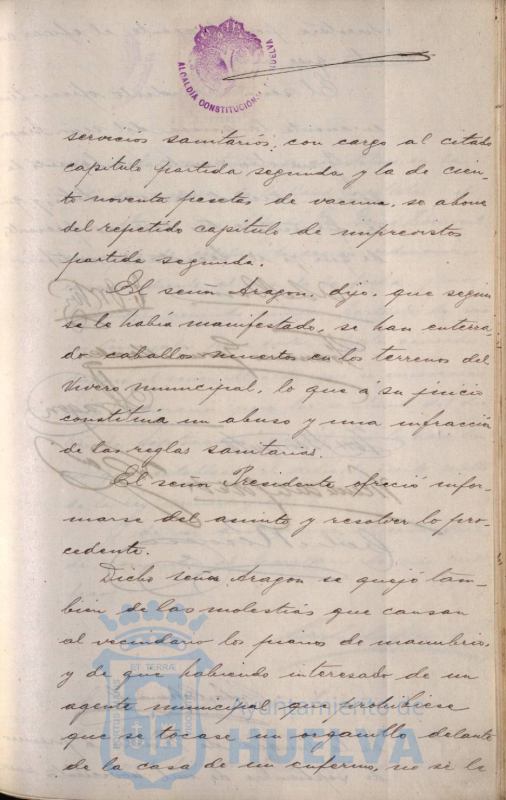 ALCALDIA CONSTITUCIONAL HUELVA
servicios sanitarios, con cargo al citado
capitulo partida segunda y la de cien-
to noventa pesetas de vacuna, se abone
del repetido capitulo de imprevistos
partida segunda.
El señor Aragon, dijo, que segun
se le había manifestado, se han enterra-
do caballos muertos en los terrenos del
Vivero municipal, lo que á su juicio
constituia un abuso y una infracción
de las reglas sanitarias.
El señor Presidente ofreció infor-
marse del asunto y resolver lo pro-
cedente.
Dicho señor Aragon se quejó tam-
bien de las molestias que causan
al vecindario los pianos de manubrio,
y de que habiendo interesado de un
agente municipal que prohibiese
que se tocase un organillo delante
de la casa de un enfermo, no se le
ET TERRÆ
Ayuntamiento de
HUELVA